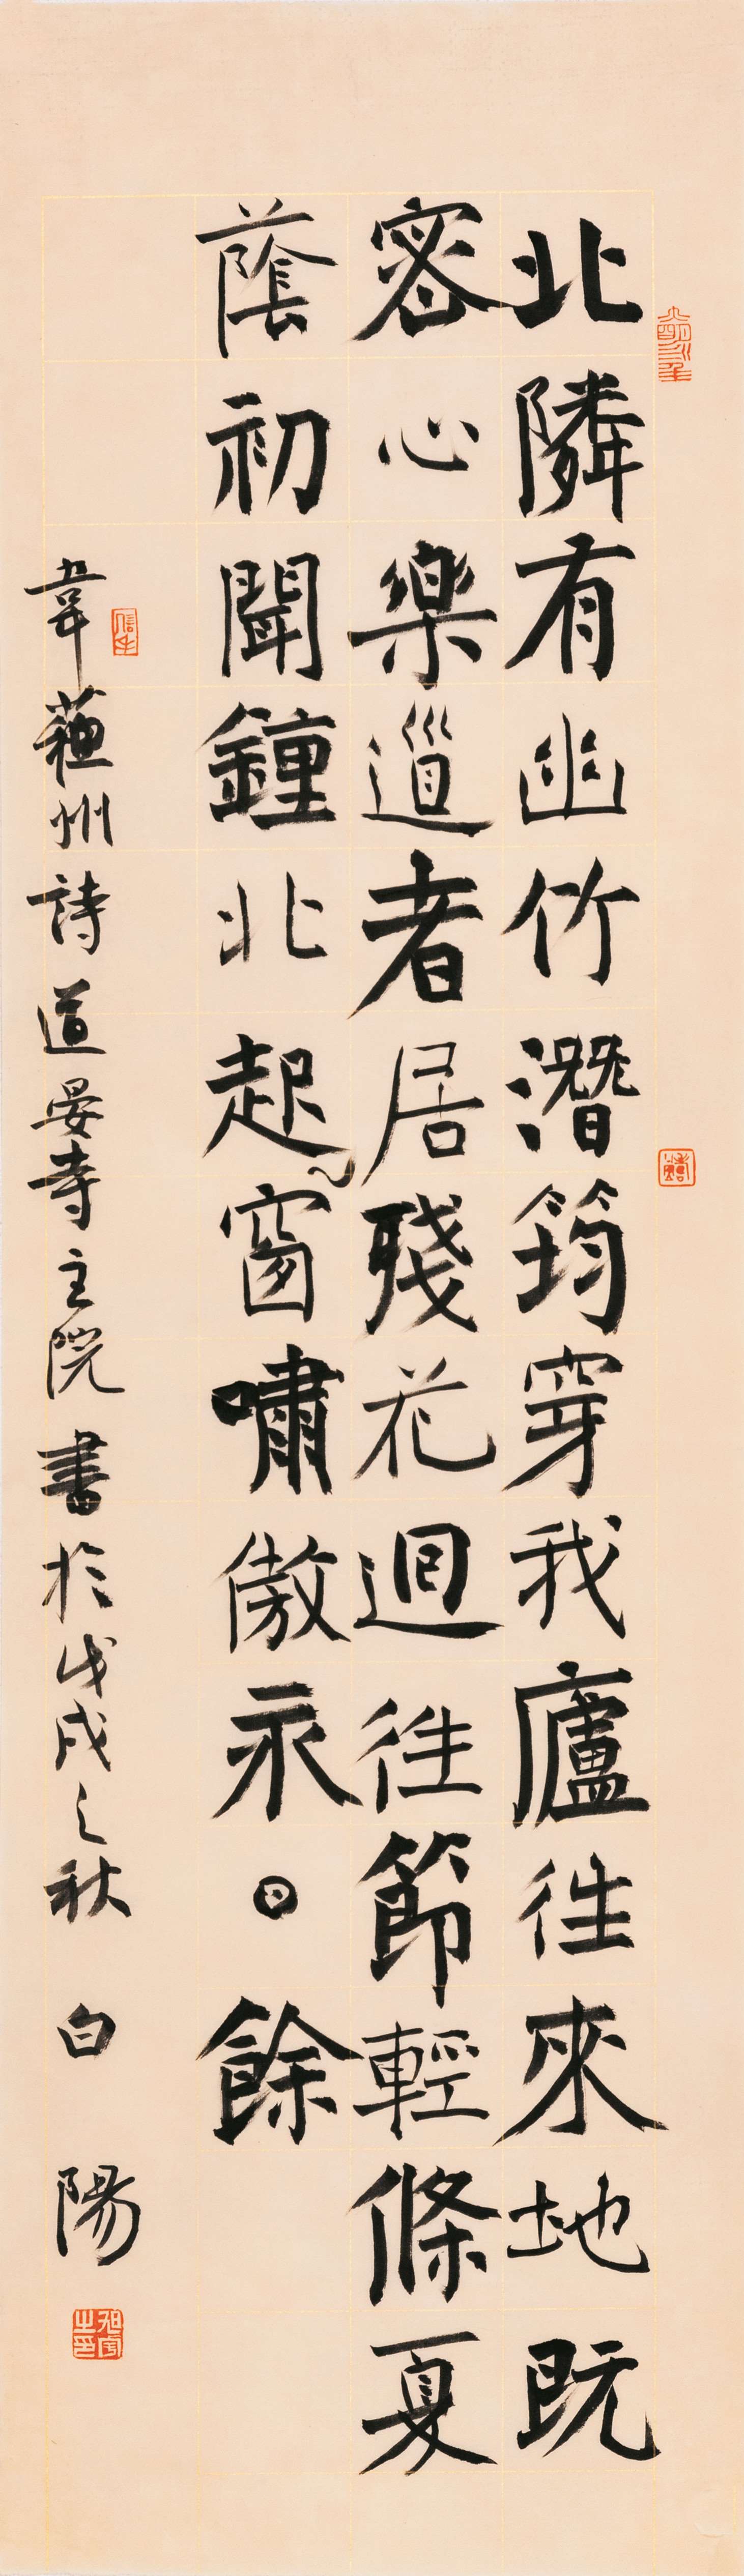 北隣有幽竹潛筠穿我廬往來地既
密心樂道者居殘花迴往節輕條夏
蔭初聞鐘北起窗嘯傲永日餘
韋蘓州詩道晏寺主院書於戊戌之秋 白陽